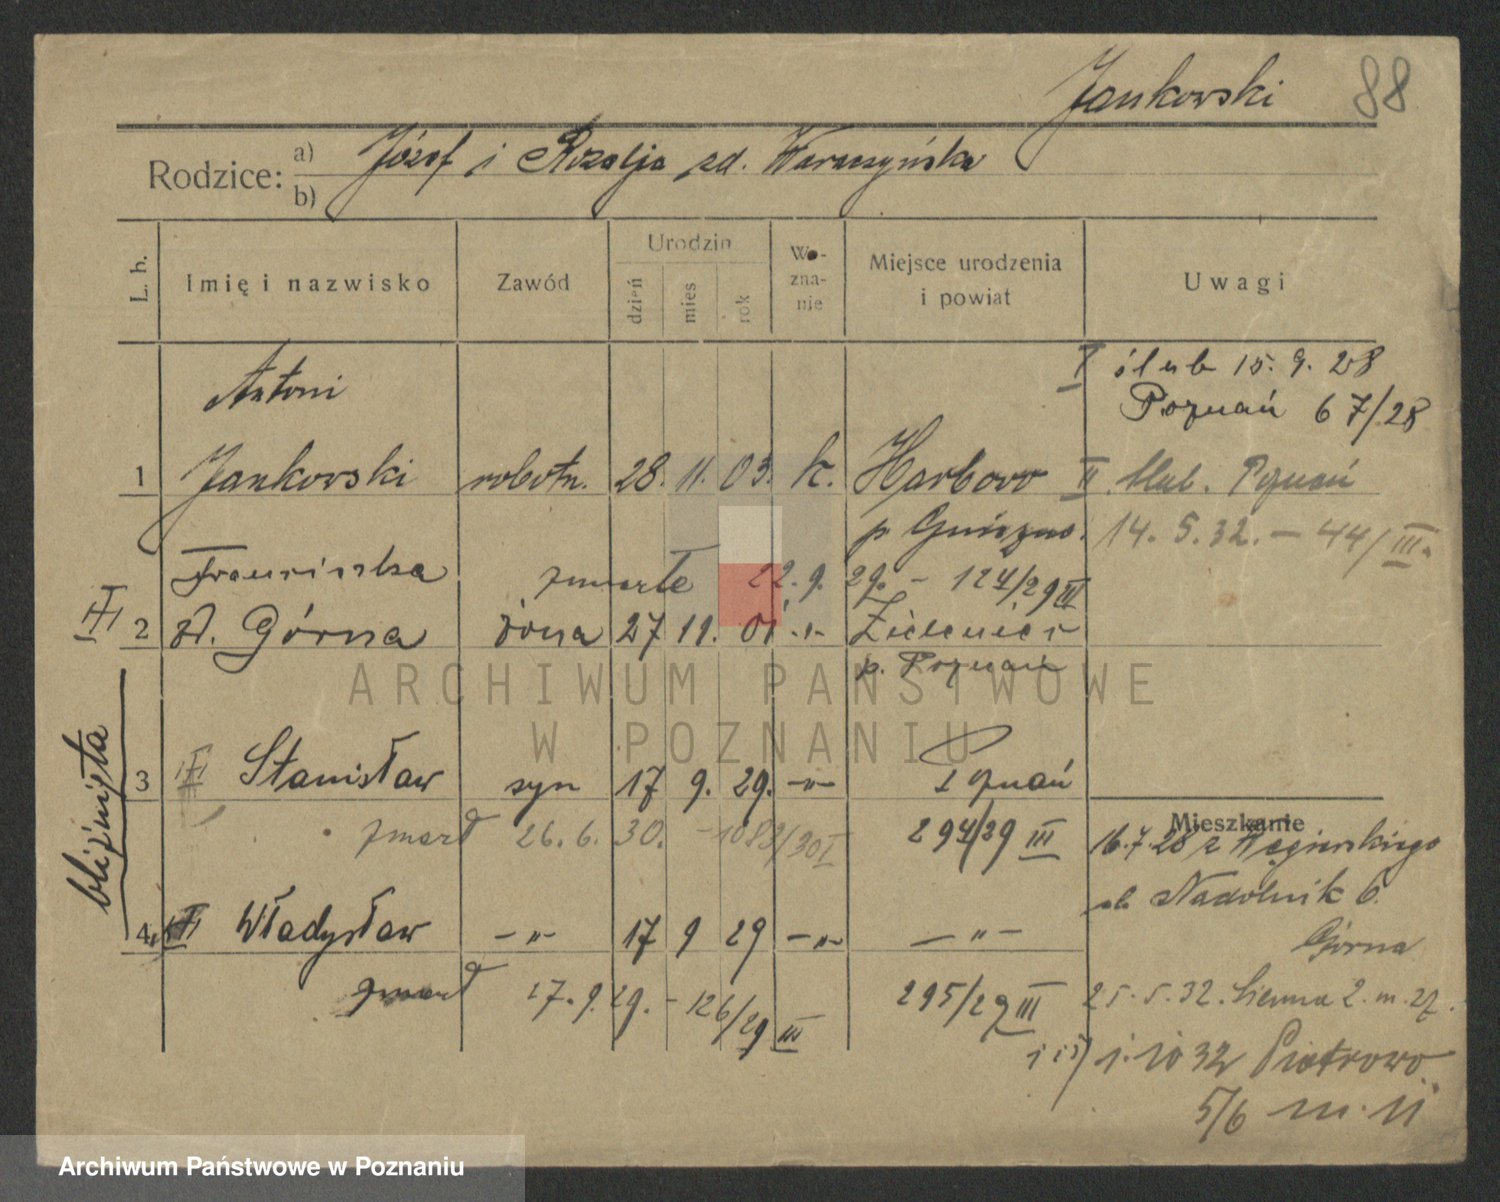 Jankowski 88
Rodzice: a) Józef i Rozalja zd. Waraczyńska
b)
L. b. Imię i nazwisko Zawód Urodzin dzień mies rok Wo-zna-nie Miejsce urodzenia i powiat Uwagi
I ślub 15. 9. 28
Antoni
Poznań 67/28
1 Jankowski robotn. 28. 11. 03. k. Harbowo II ślub. Poznań
p Gniezno. 14. 5. 32. - 44/III.
Franciszka zmarła 22. 9. 29. - 124/29 III
2 zd. Górna żona 27 11. 01 -"- Zieleniec
p. Poznań
bliźnięta
3 Stanisław syn 17 9. 29. -"- Poznań
Mieszkanie
zmarł 26. 6. 30. - 1083/30 I 294/29 III 16.7.28 z Węgierskiego
ul. Nadolnik 6.
4 Władysław -"- 17 9 29 -"- -"-
Górna
zmarł 17. 9. 29. - 126/29 III 295/29 III 25. 5. 32. Sienna 2. m. 27.
1. 10 32 Piotrowo
5/6 m. 11
ARCHIWUM PAŃSTWOWE
W POZNANIU
Archiwum Państwowe w Poznaniu